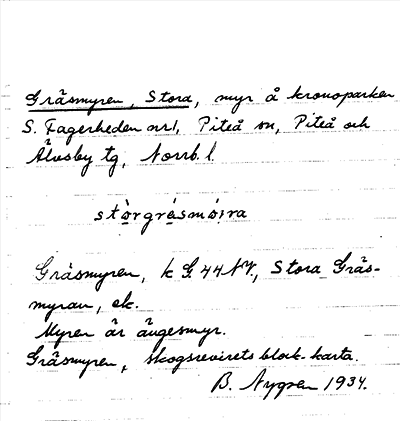 Gräsmyren, Stora, myr å kronoparken
S. Fagerheden nr 1, Piteå sn, Piteå och
Älvsby tg, Norrb. l.
stòrgrásmóira
Gräsmyren, k G. 44 NV., Stora Gräs-
myran, ek.
Myren är ängesmyr.
Gräsmyren, skogsrevirets block-karta.
B. Nygren 1934.